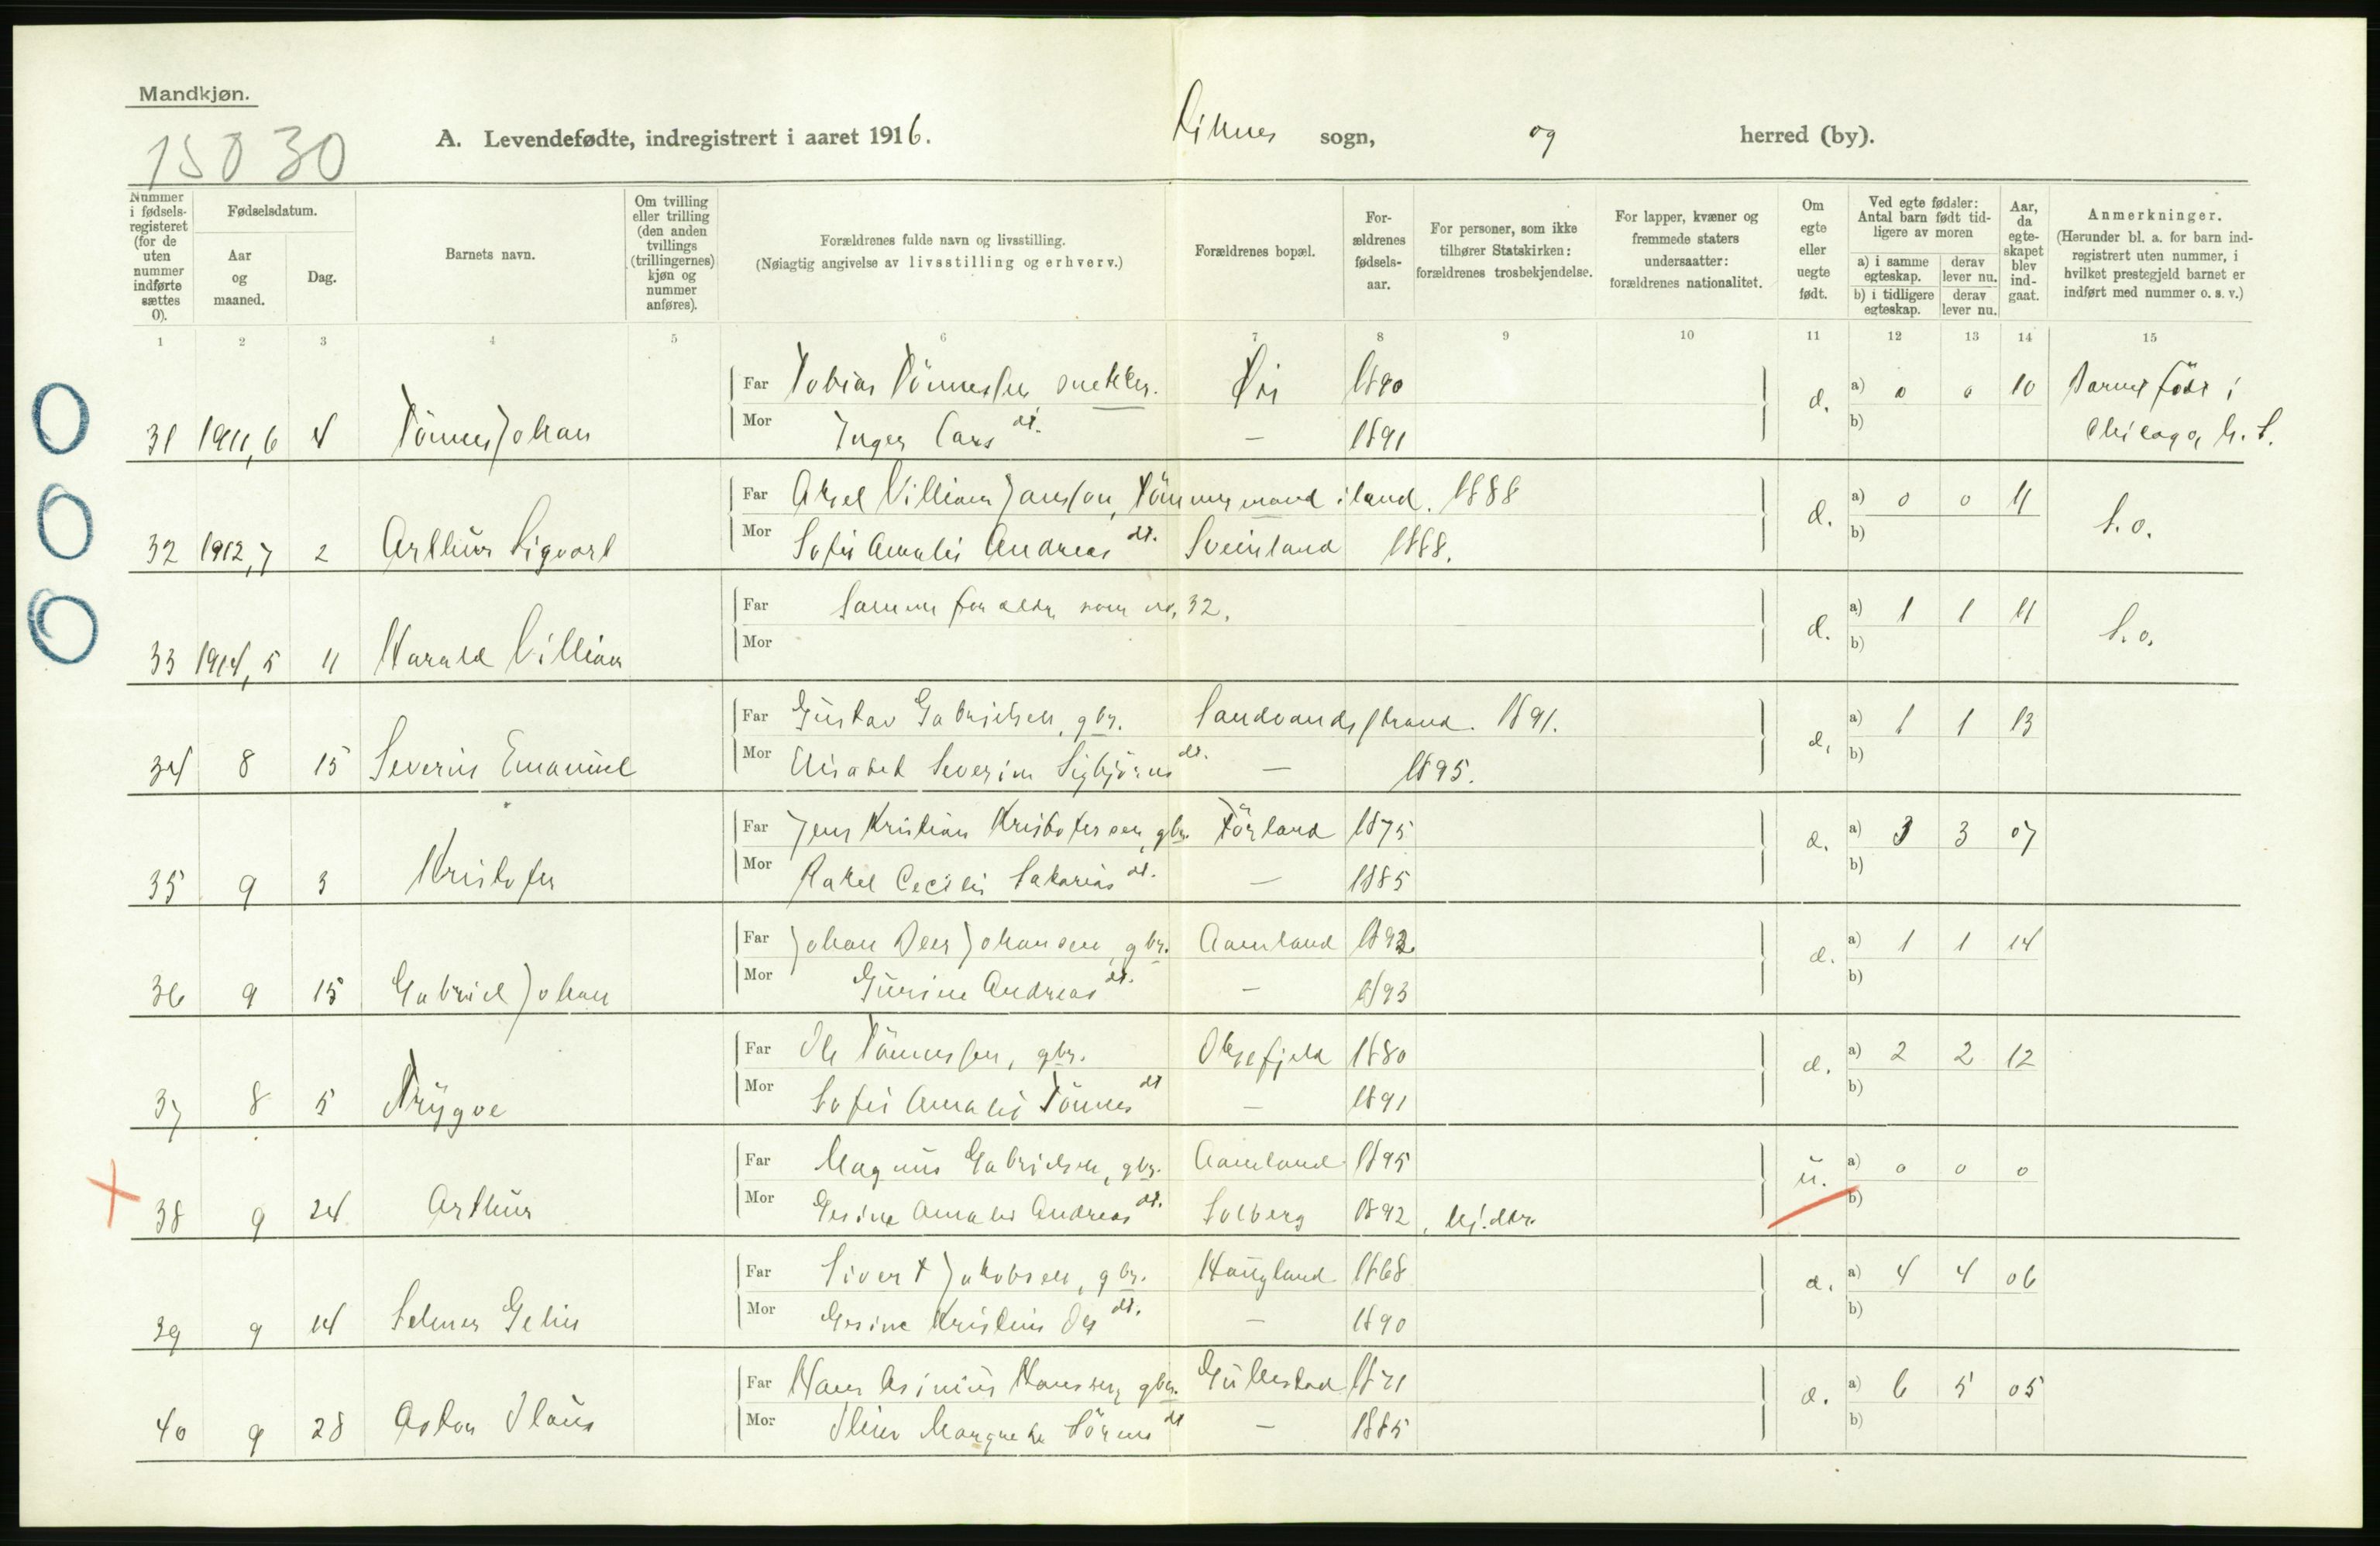 Mandkjøn.
15030
A. Levendefødte, indregistrert i aaret 1916. sogn, og herred (by).
Nummer i fødsels-registeret (for de uten nummer indførte sættes 0).
Fødselsdatum.
Aar og maaned.
Dag.
Barnets navn.
Om tvilling eller trilling (den anden tvillings (trillingernes) kjøn og nummer anføres).
Forældrenes fulde navn og livsstilling.
(Nøiagtig angivelse av livsstilling og erhverv.)
Forældrenes bopæl.
For-ældrenes fødsels-aar.
For personer, som ikke tilhører Statskirken: forældrenes trosbekjendelse.
For lapper, kvæner og fremmede staters undersaatter: forældrenes nationalitet.
Om egte eller uegte født.
Ved egte fødsler: Antal barn født tid-ligere av moren
a) i samme egteskap. derav lever nu.
b) i tidligere egteskap. derav lever nu.
Aar, da egte-skapet blev ind-gaat.
Anmerkninger.
(Herunder bl. a. for barn ind-registrert uten nummer, i hvilket prestegjeld barnet er indført med nummer o. s. v.)
1 2 3 4 5 6 7 8 9 10 11 12 13 14 15
Far Tobias Tönnessen, snekker. 1890 a) 0 0 10 Barnet födt i
31 1911, 6 4 Tönnes Johan Mor Inger Lars dt. — 1891 d. b) Chicago, U. S.
Far Aksel Villiam Jansson, Tömmermand iland. 1888 a) 0 0 11
32 1912, 7 2 Arthur Sigvart Mor Sofie Amalie Andreas dt. Sveinland 1888. d. b) S. o.
Far Samme foreldre som no. 32. a) 1 1 11
33 1914, 5 11 Harald Villiam Mor d. b) S. o.
Far Gustav Gabrielsen, gbr. Sandvandstrand. 1891. a) 1 1 13
34 8 15 Severin Emanuel Mor Elisabet Severine Sigbjörns dt. — 1895. d. b)
Far Jens Kristian Kristofersen, gbr. Törland 1875 a) 3 3 07
35 9 3 Kristofer Mor Rakel Cecilie Sakarias dt. — 1885 d. b)
Far Johan Peer Johansen, gbr. Aamland 1892 a) 1 1 14
36 9 15 Gabriel Johan Mor Gurine Andreas dt. — 1893 d. b)
Far Ole Tönnessen, gbr. Oksefjeld 1880 a) 2 2 12
37 8 5 Trygve Mor Sofie Amalie Tönnes dt — 1891 d. b)
Far Magnus Gabrielsen, gbr. Aamland 1895 a) 0 0 0
38 9 24 Arthur Mor Gesine Amalie Andreas dt. Solberg 1892, u. b)
Far Sivert Jakobsen, gbr. Haugland 1868 a) 4 4 06
39 9 14 Selmer Gelin Mor Gesine Kristine Ols dt. — 1890 d. b)
Far Hans Asinius Hanssen, gbr. Gullestad 1871 a) 6 5 05
40 9 28 Mor Margrethe dt — 1885 d. b)